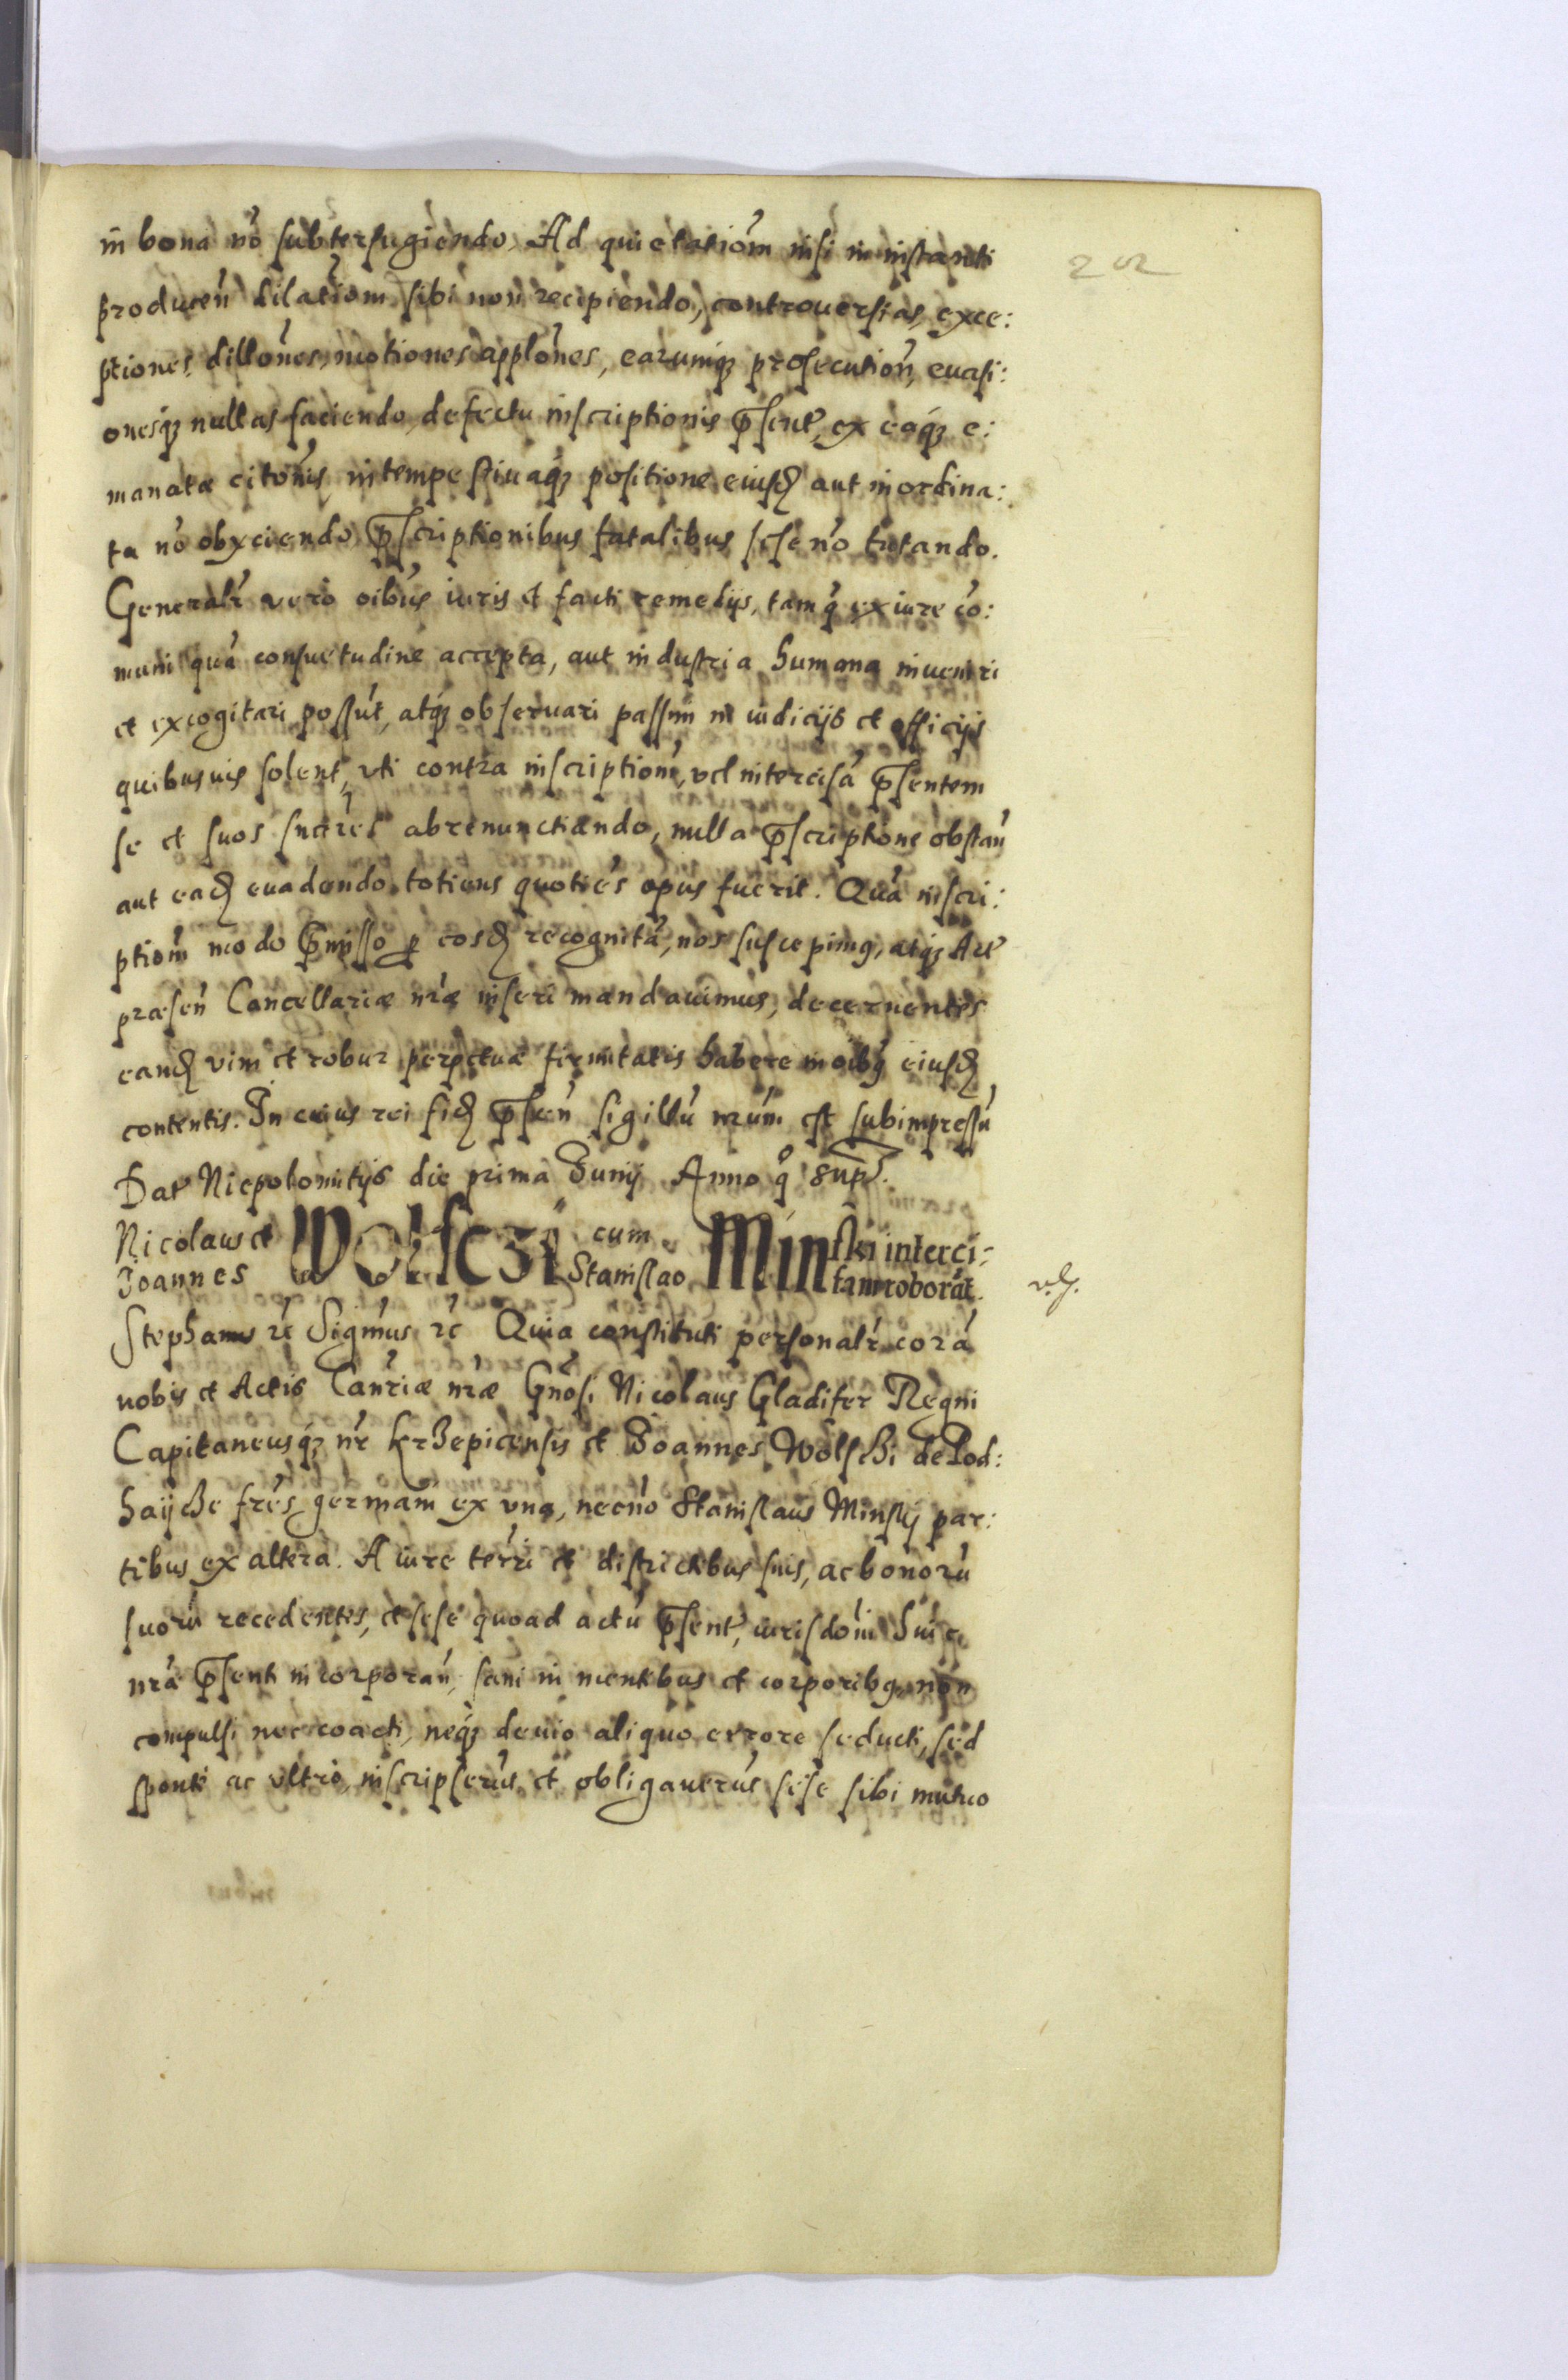 in bona nõ subterfugiendo. Ad quietatiõm nisi in instanti
202
producen̄ dilatiõm sibi non recipiendo, controuersias, exce:
ptiones, dillões, motiones applões, earumq́ꝫ prosecutiōn, euasi:
onesq́ꝫ nullas faciendo, defectu inscriptionis p̄sent, ex eoq́ꝫ e:
manatæ citõnis, intempestiuaq́ꝫ positione eiusd aut inordina:
ta nõ obyciendo p̄scriptionibus fatalibus sese nõ tutando.
Generalr̃ vero oĩbus iuris et facti remedijs, tam q̃ ex iure cõ:
muni quã consuetudine accepta, aut industria humana inueniri
et excogitari possũt, atq́ꝫ obseruari passim in iudicijs et officijs
quibusuis solent, vti contra inscriptiõm, vel intercisã p̄sentem
se et suos succr̃es abrenunctiando, nulla p̄scriptione obstan̄
aut ead euadendo totiens quoties opus fuerit. Quã inscri:
ptiõm modo p̄misso ꝑ eosd recognitã, nos suscepimꝰ, atq́ꝫ Act
præsen̄ Cancellariæ nr̃æ inseri mandauimus, decernentes
eand vim et robur perpetuæ firmitatis habere in oĩbꝰ eiusd
contentis. In cuius rei fid p̄sen̄ sigillũ nrũm est subimpressũ
Dat Niepolomitijs die prima Junij Anno q̊ sup̄.
Nicolaus et Wolsczi cum Minski interci:
Joannes Stanislao sam roborãt.
Stephanus rc̃ Sigm̃us rc̃ Quia constituti personalr̃ corã
nobis et Actis Canr̃iæ nr̃æ Gñosi Nicolaus Gladifer Regni
Capitaneusq́ꝫ nr̃ Krzepicensis et Joannes Wolschi de Pod:
haijcze fr̃es germani ex vna, necnõ Stanislaus Minskj par:
tibus ex altera. A iure terri et districtibus suis, ac bonorũ
suorũ recedentes, et sese quoad actũ p̄sent, iurisdõni huic
nr̃æ p̄senti incorporan̄, sani in mentibus et corporibꝰ, non
compulsi nec coacti, neq́ꝫ deuio aliquo errore seducti, sed
sponte ac vltro, inscripserũt et obligauerũt sese sibi mutuo